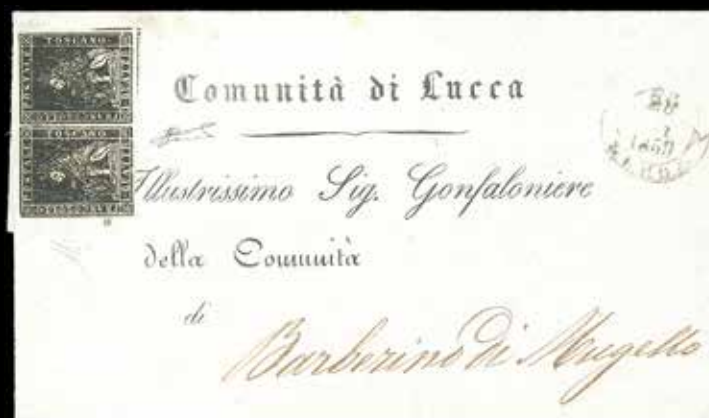 TOSCANO
TOSCANO
Comunità di Lucca
Illustrissimo Sig. Gonfaloniere
della Comunità
di
Barberino di Mugello